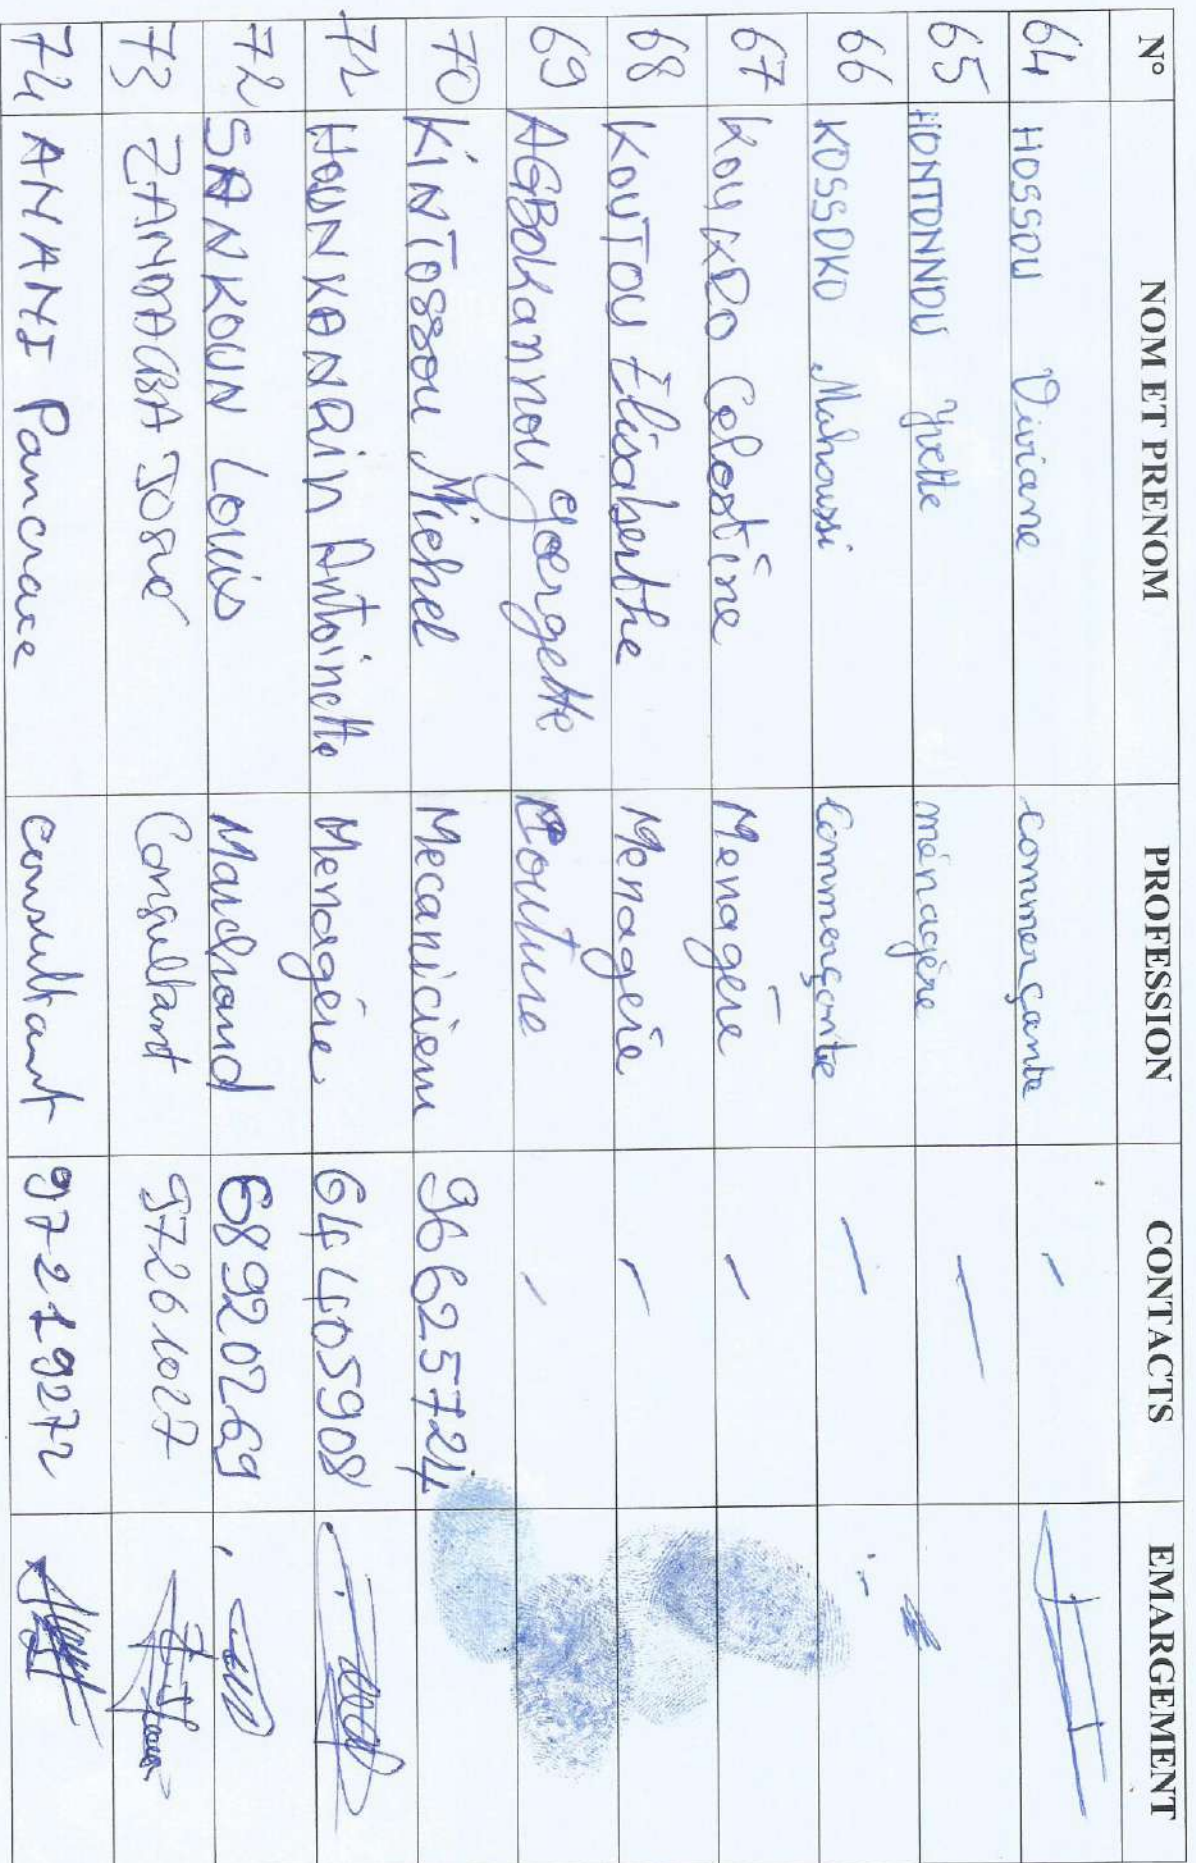 N° NOM ET PRENOM PROFESSION CONTACTS EMARGEMENT
64 HOSSOU Viviane commerçante -
65 HONTONNDU Yvette ménagère -
66 KOSSOKO Mahoussi Commerçante -
67 KOUKDO Celestine Menagère -
68 KOUTOU Elisaberthe Menagère -
69 AGBOKannou goergette Couture -
70 KINTOSSOU Michel Mecanicien 96625724
71 HOUNKANRIN Antoinette Menagère 64405908
72 SANKOUN Louis Marchand 68920269
73 José Consultant 97261027
74 AMAMI Pancrace consultant 97219272